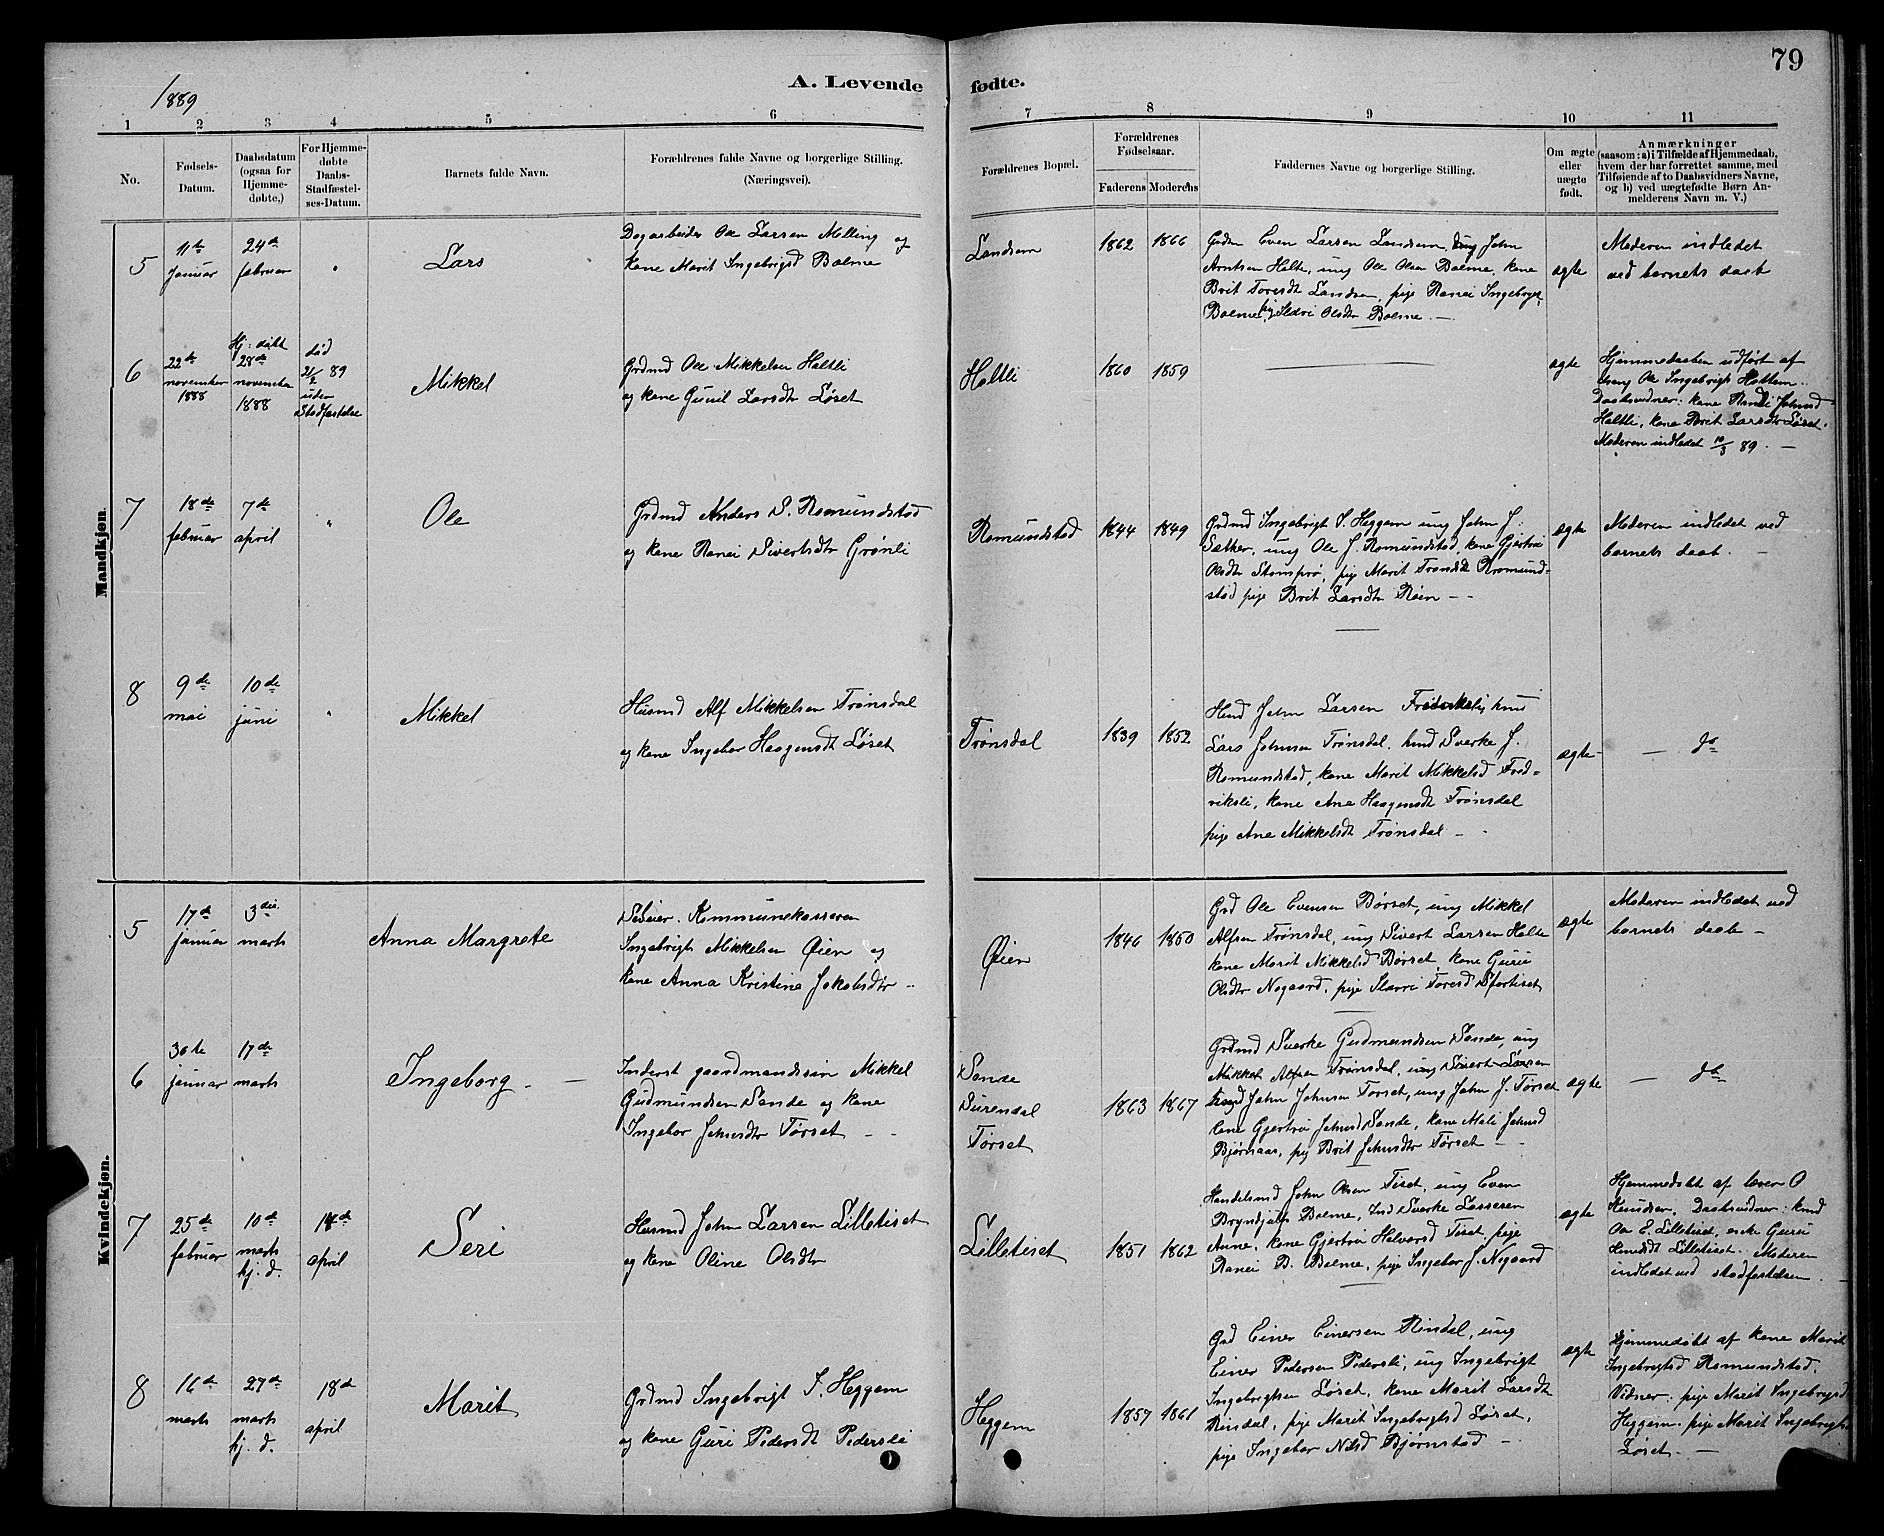 79
1889
A. Levende fødte.
1 2 3 4 5 6 7 8 9 10 11
No.
Fødsels-
Datum.
Daabsdatum
(ogsaa for
Hjemme-
døbte,)
For Hjemme-
døbte
Daabs-
Stadfæstel-
ses-Datum.
Barnets fulde Navn.
Forældrenes fulde Navne og borgerlige Stilling.
(Næringsvei).
Forældrenes Bopæl.
Forældrenes
Fødselsaar.
Faderens Moderens
Faddernes Navne og borgerlige Stilling.
Om ægte
eller
uægte
født.
Anmærkninger
(saasom: a) i Tilfælde af Hjemmedaab,
hvem der har forrettet samme, med
Tilføiende af to Daabsvidners Navne,
og b) ved uægtefødte Børn An-
melderens Navn m. V.)
Mandkjøn.
5
11te
januar
24de
februar
"
Lars
Dagarbeider Ole Larsen Melling og
kone Marit Ingebrigd Bolme
Landsem
1862 1866
Even Larsen Landsem, ung John
Arntsen Halte, ung Ole Olsen Bolme, kone
Brit Toresdt Landsem, pige Ranei Ingebrigt
Bolme, pig Sidvi Olsdtr Bolme. —
ægte
Moderen indledet
ved barnets daab
6
22de
november
1888
Hj: døbt
28de
november
1888
død
21/2 89
uden
Stadfæstelse
Mikkel
Grdmd Ole Mikkelsen Holtli
og kone Guril Larsdtr Løset
Holtli
1860 1859
ægte
Hjemmedaaben udført af
Ole Ingebrigts Hottem.
Daabsvidner: kone Randi Johnsd
Holtli, kone Brit Larsdtr Løset.
Moderen indledet 10/3 89. —
7
18de
februar
7de
april
"
Ole
Grdmd Anders S. Romundstad
og kone Ranei Sivertsdtr Grønli
Romundstad
1844 1849
Grdmd Ingebrigt S. Heggem ung John J.
Sæther, ung Ole J. Romundstad, kone Gjertrui
Olsdtr Stomprø, pige Marit Trondsdt Romund-
stad pige Brit Larsdtr Røen - -
ægte
Moderen indledet ved
barnets daab. —
8
9de
mai
10de
juni
"
Mikkel
Husmd Alf Mikkelsen Trønsdal
og kone Ingebor Haagensdt Løset
Trønsdal
1839 1852
John Larsen Fredriksli, husm
Lars Johnsen Trønsdal, husd Sverke J.
Romundstad, kone Marit Mikkelsd Fred-
riksli, kone Ane Haagensdt Trønsdal
pige Ane Mikkelsdt Trønsdal -
ægte
— do
Kvindekjøn.
5
17de
januar
3die
marts
Anna Margrete
Selveier. Kommunekasserer
Ingebrigt Mikkelsen Øien og
kone Anna Kristine Jakobsdtr -
Øien
1846 1850
Grd Ole Evensen Børset, ung Mikkel
Alfsen Trønsdal, ung Sivert Larsen Halte
kone Marit Mikkelsd Børset kone Guru
Olsdtr Nogaard, pige Toresd
ægte
Moderen indledet ved
barnets daab —
6
30te
januar
17de
marts
Ingeborg
Inderst gaardmandssøn Mikkel
Gudmundsen Sande og kone
Ingebor Johnsdtr Tørset —
Sande
Surendal
Tørset
1863 1867
Grdmd Sverke Gudmundsen Sande, ung
Mikkel Alfsen Trønsdal, ung Sivert Larsen
John Johnsen Tørset, ung John J. Tørset
kone Gjertrui Johnsd Sande, kone Mali Johnsd
Bjørnaas, pig Brit Johnsdtr Tørset —
ægte
— do
7
25de
februar
10de
marts
hj. d.
14de
april
Seri
Husmd John Larsen Lilletiset
og kone Oline Olsdtr
Lilletiset
1851 1862
Handelsmd John Olsen Tiset, ung Even
Bryndjulfs Bolme, Ind Sverke Lassesen
Aune, kone Gjertrui Halvorsd Tiset, pige
Ranei B. Bolme, pige Ingebor J. Nogaard
ægte
Hjemmedøbt af lærer O
Knudsen. Daabsvidner:
Ole E. Lilletiset, enke Guru
Knudsdt Lilletiset. Moderen
indledet ved stadfæstelsen.
8
16de
marts
27de
marts
hj. d.
18de
april
Marit
Grdmd Ingebrigt S. Heggem
og kone Guri Pedersdt Pedersli
Heggem
1857 1861
Grd Einer Einersen Rindal, ung
Einer Pedersen Pedersli, ung Ingebrigt
Ingebrigtsen Løset, kone Marit Larsdt
Rindal, pige Marit Ingebrigtsd Løset,
pige Ingebor Nilsd Bjørnstad —
ægte
Hjemmedøbt af kone Marit
Ingebrigtsd Romundstad.
Vidner: pige Marit Ingebrigtsd
Heggem. pige Marit Ingebrigtsd
Løset. —